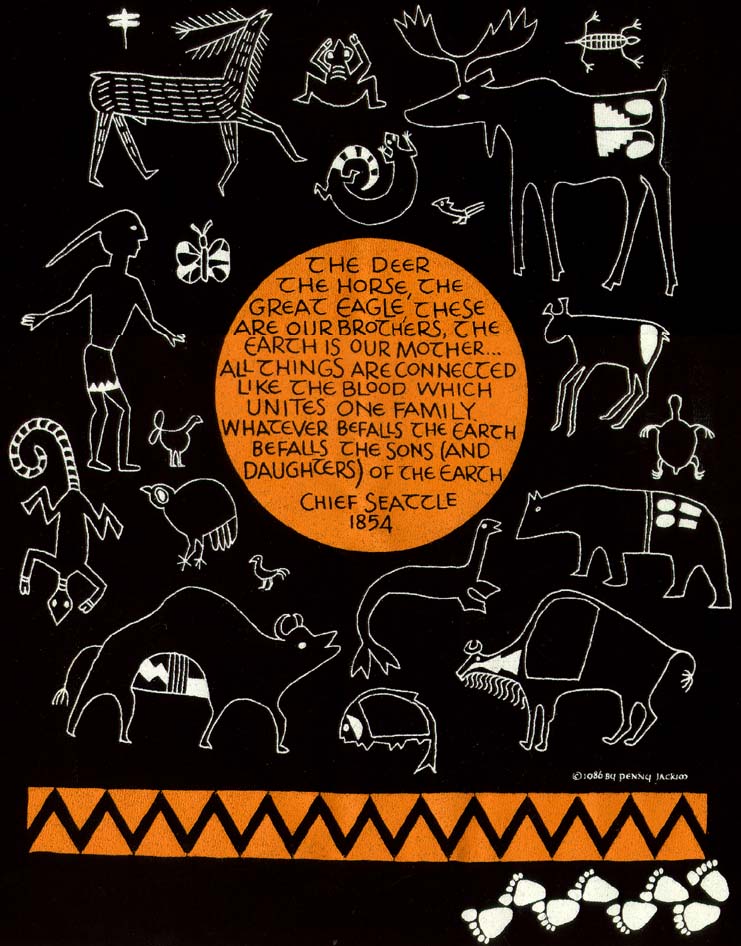 THE DEER
THE HORSE, THE
GREAT EAGLE, THESE
ARE OUR BROTHERS, THE
EARTH IS OUR MOTHER...
ALL THINGS ARE CONNECTED
LIKE THE BLOOD WHICH
UNITES ONE FAMILY
WHATEVER BEFALLS THE EARTH
BEFALLS THE SONS (AND
DAUGHTERS) OF THE EARTH
CHIEF SEATTLE
1854
©1986 BY PENNY JACKIM